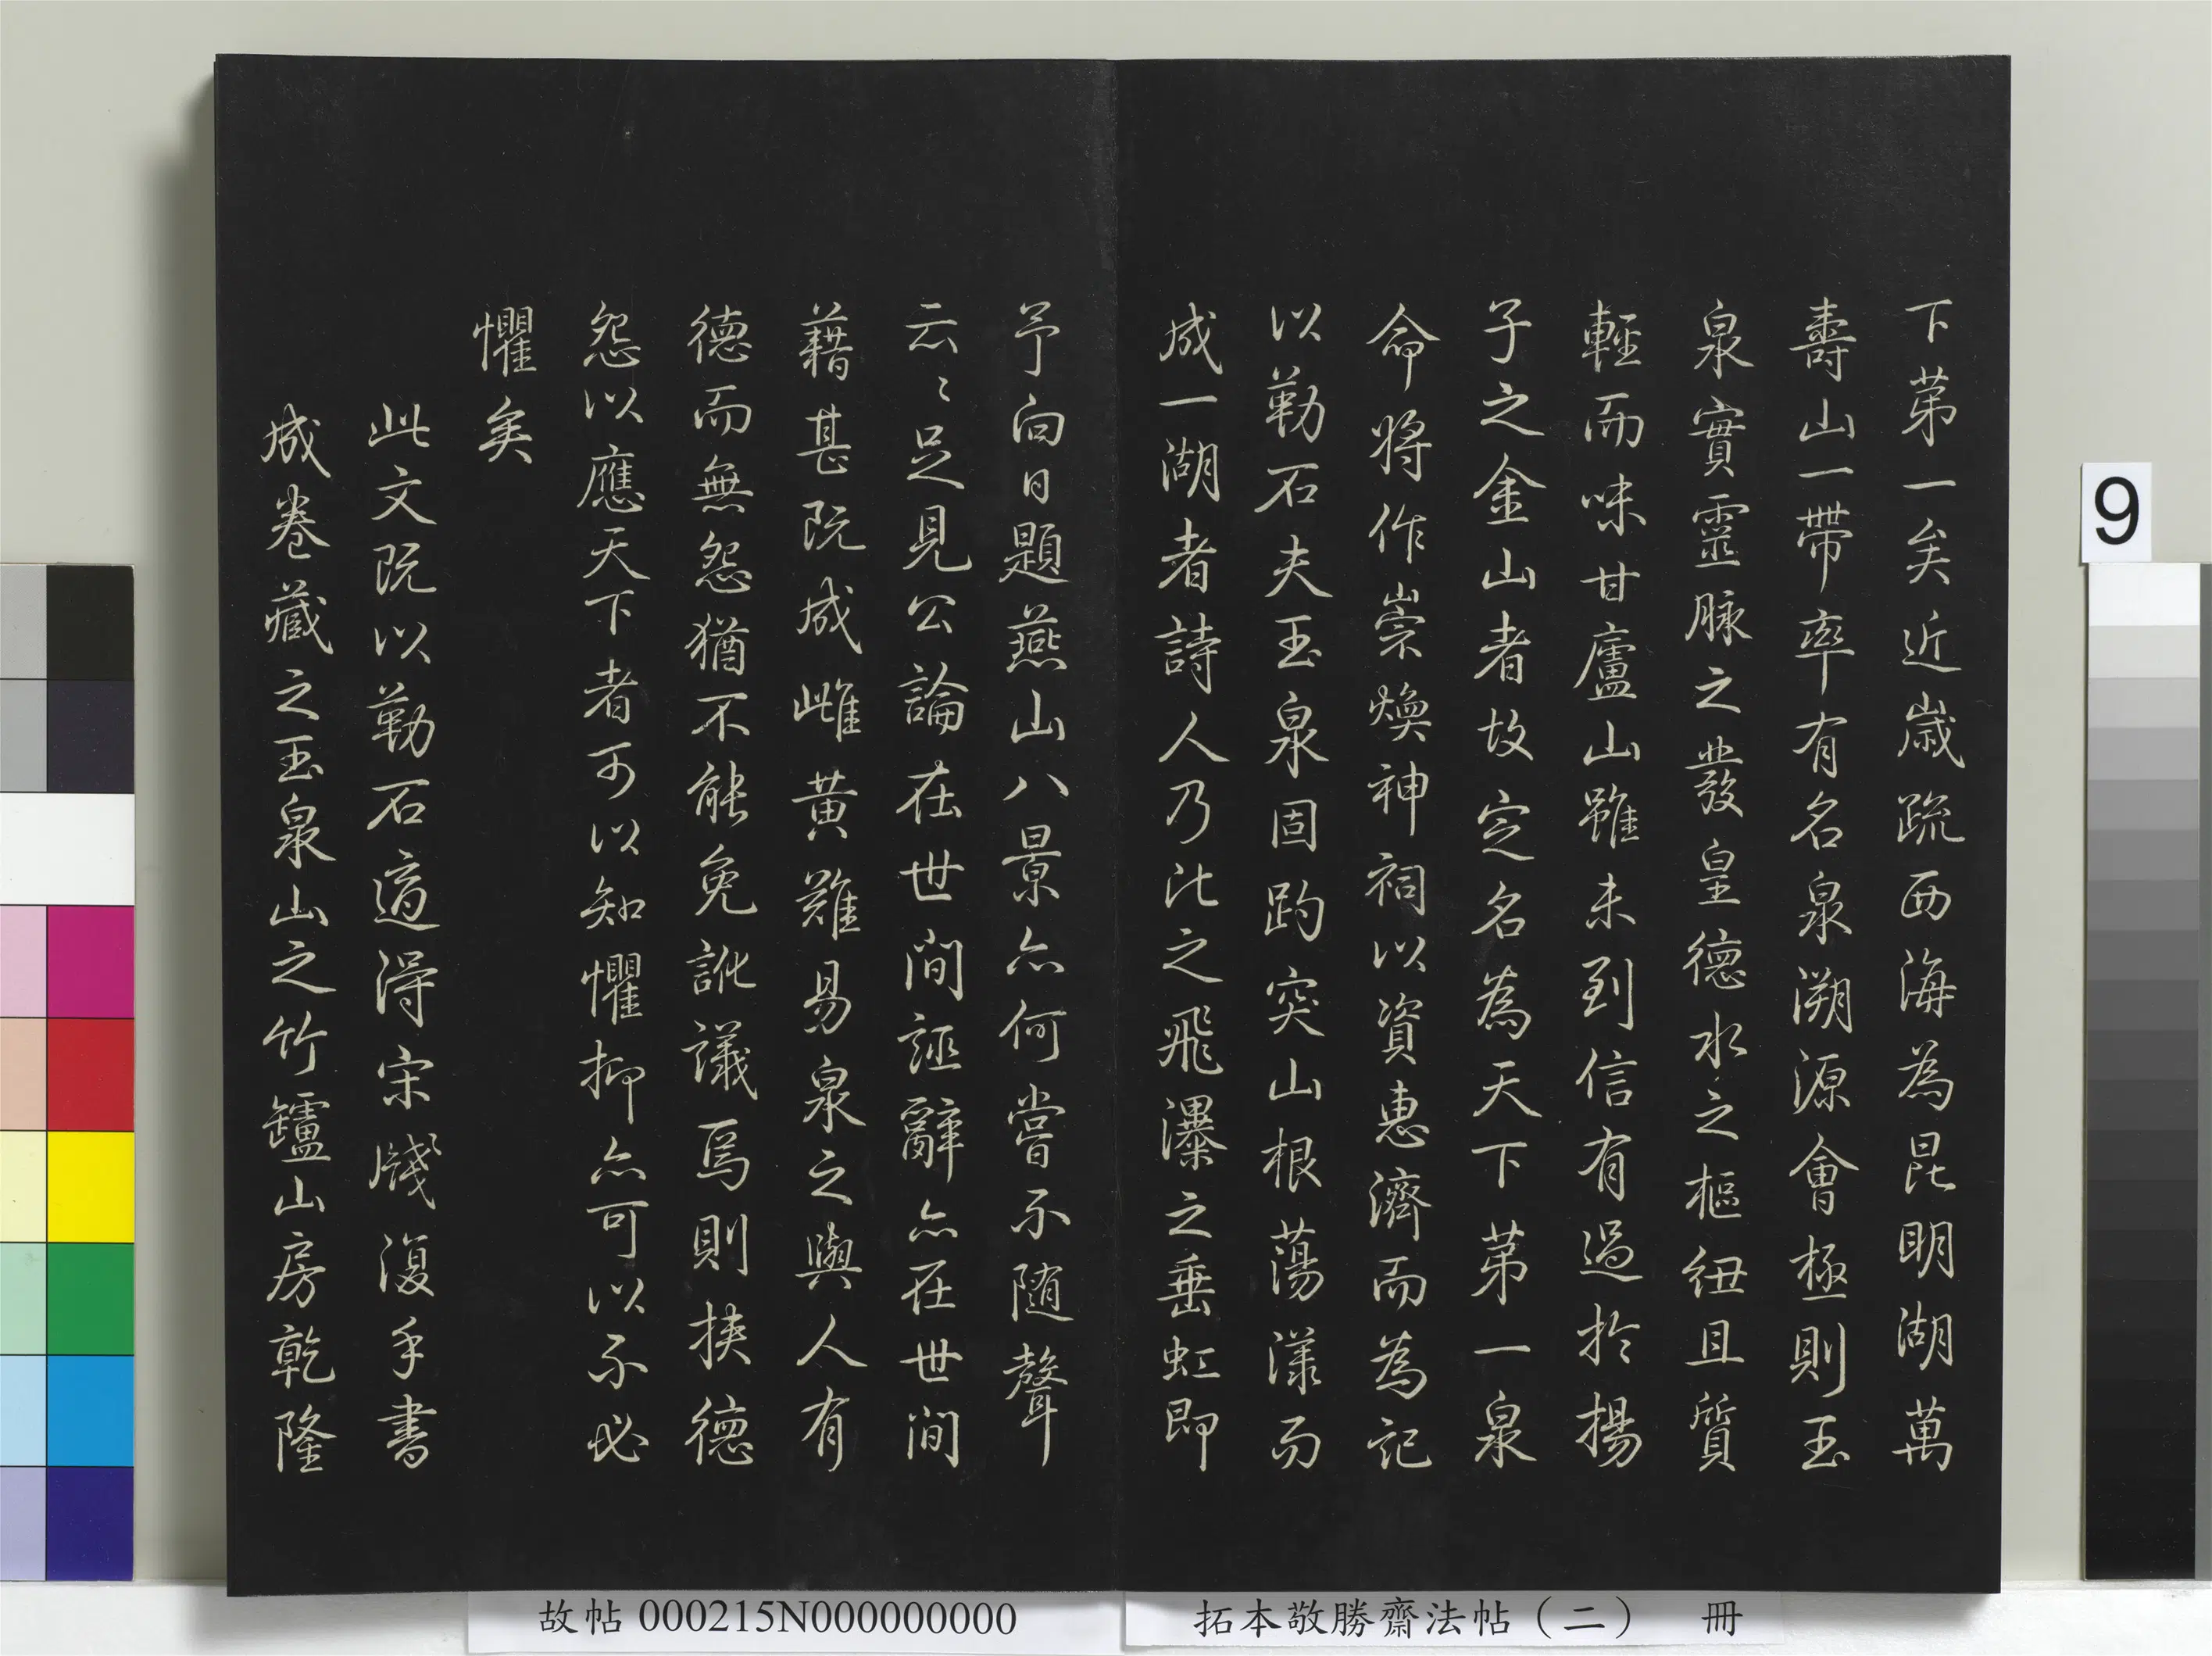 下苐一矣近歲疏西海為昆明湖萬
壽山一帶率有名泉溯源會極則玉
泉實靈脉之發皇德水之樞紐且質
輕而味甘廬山雖未到信有過於揚
子之金山者故定名為天下苐一泉
命将作崇煥神祠以資惠濟而為記
以勒石夫玉泉固趵突山根蕩漾而
成一湖者詩人乃比之飛瀑之垂虹即
予向日題燕山八景亦何嘗不随聲
云〻足見公論在世間誣辭亦在世間
藉甚既成雌黄難易泉之與人有
德而無怨猶不能免訿議焉則挟德
怨以應天下者可以知懼抑亦可以不必
懼矣
此文既以勒石適得宋牋復手書
成卷藏之玉泉山之竹罏山房乾隆
9
故帖000215N000000000
拓本敬勝齋法帖（二） 冊